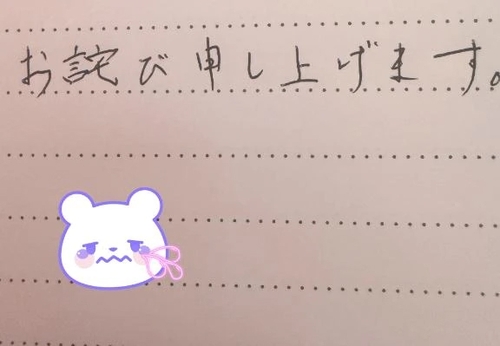 お詫び申し上げます。